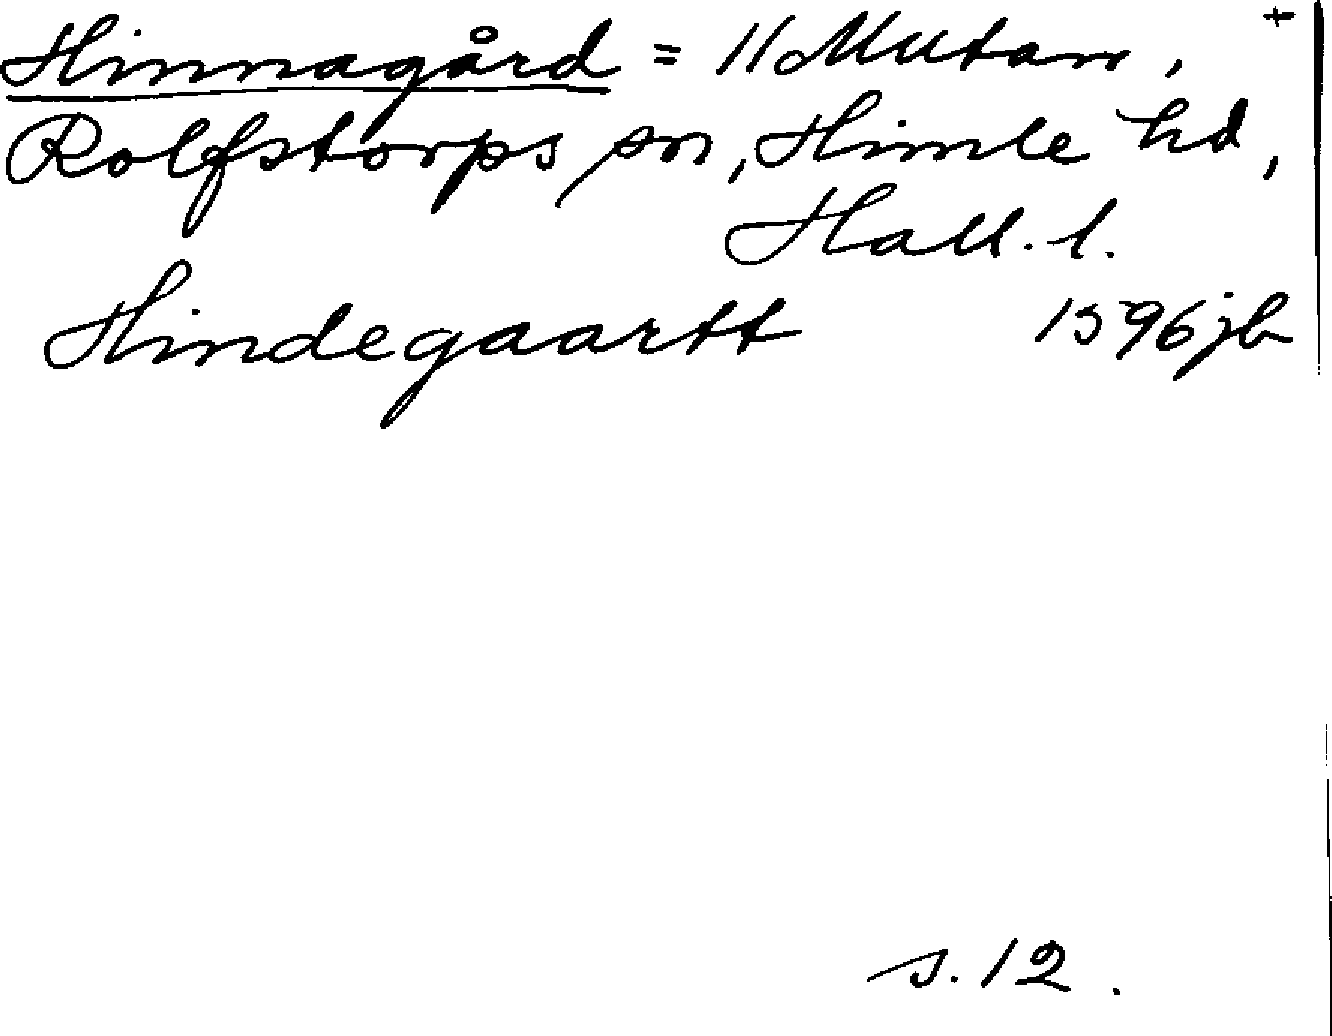 Hinnagård = 11 Mutan, +
Rolfstorps sn, Himle hd,
Hall. l.
Hindegaartt 1596 jb
s. 12.